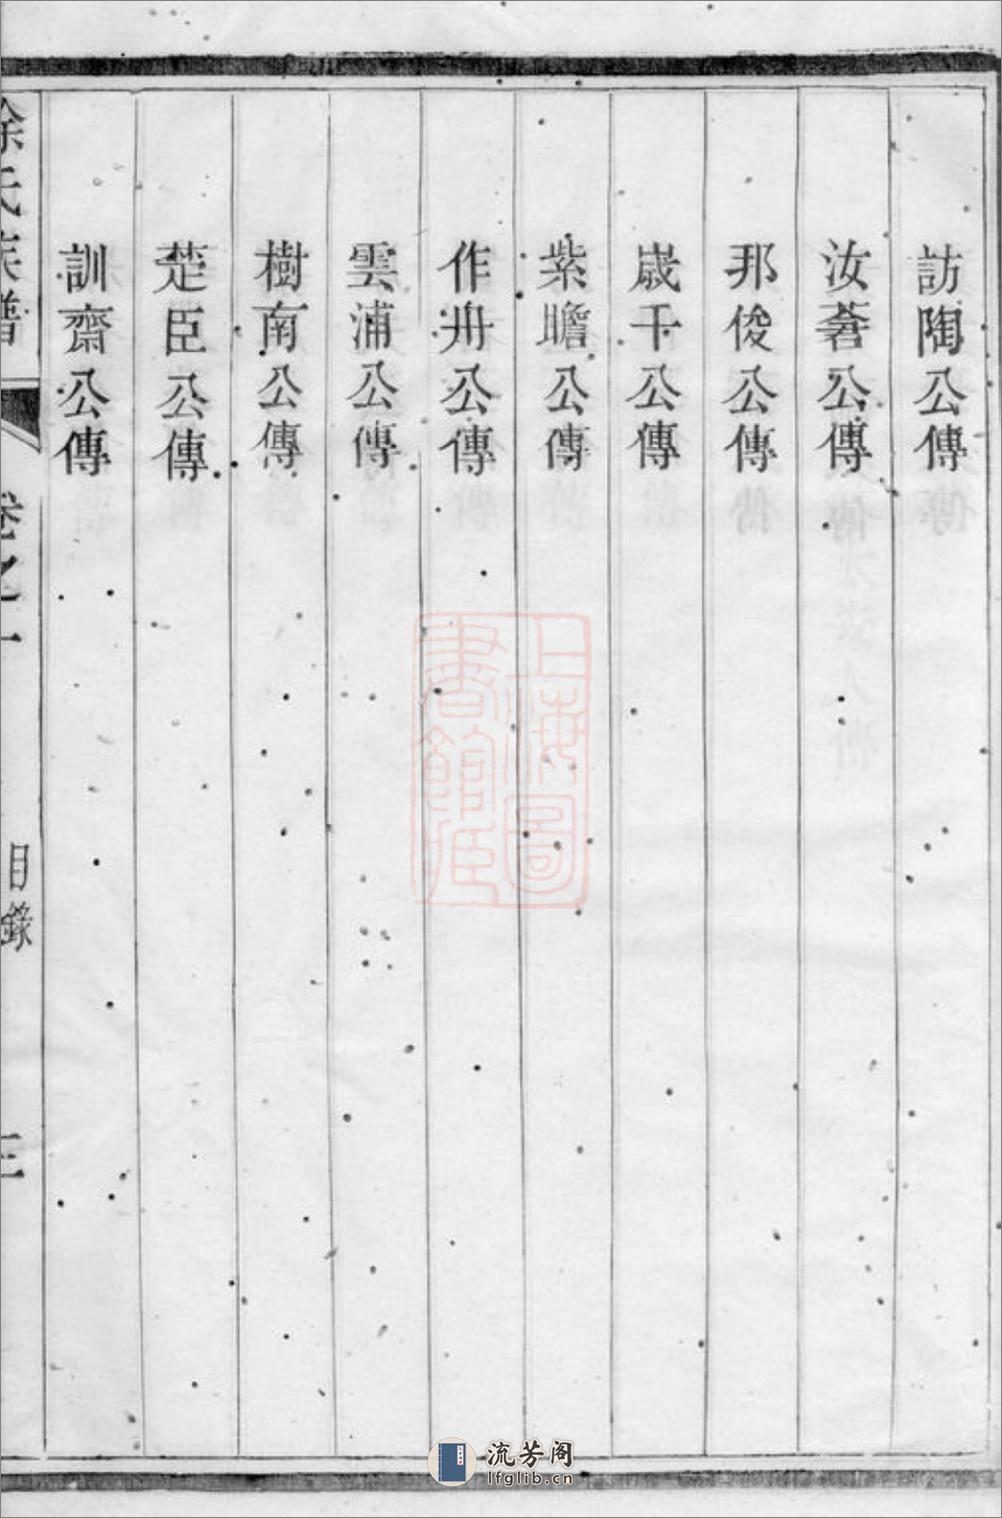 訪陶公傳
汝蒼公傳
邦俊公傳
歲千公傳
紫瞻公傳
作舟公傳
雲浦公傳
樹南公傳
楚臣公傳
訓齋公傳
徐氏族譜 卷之一 目錄 三
上海圖書館藏
流芳阁
lfglib.cn